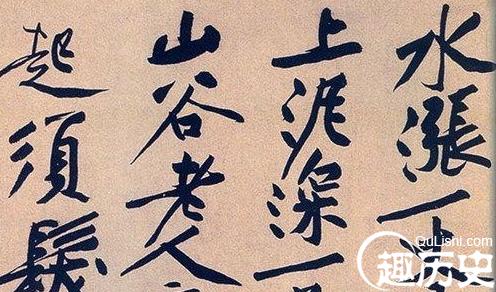 水漲一
上泥深一
山谷老人
起須髮
QuLishi.com
趣历史